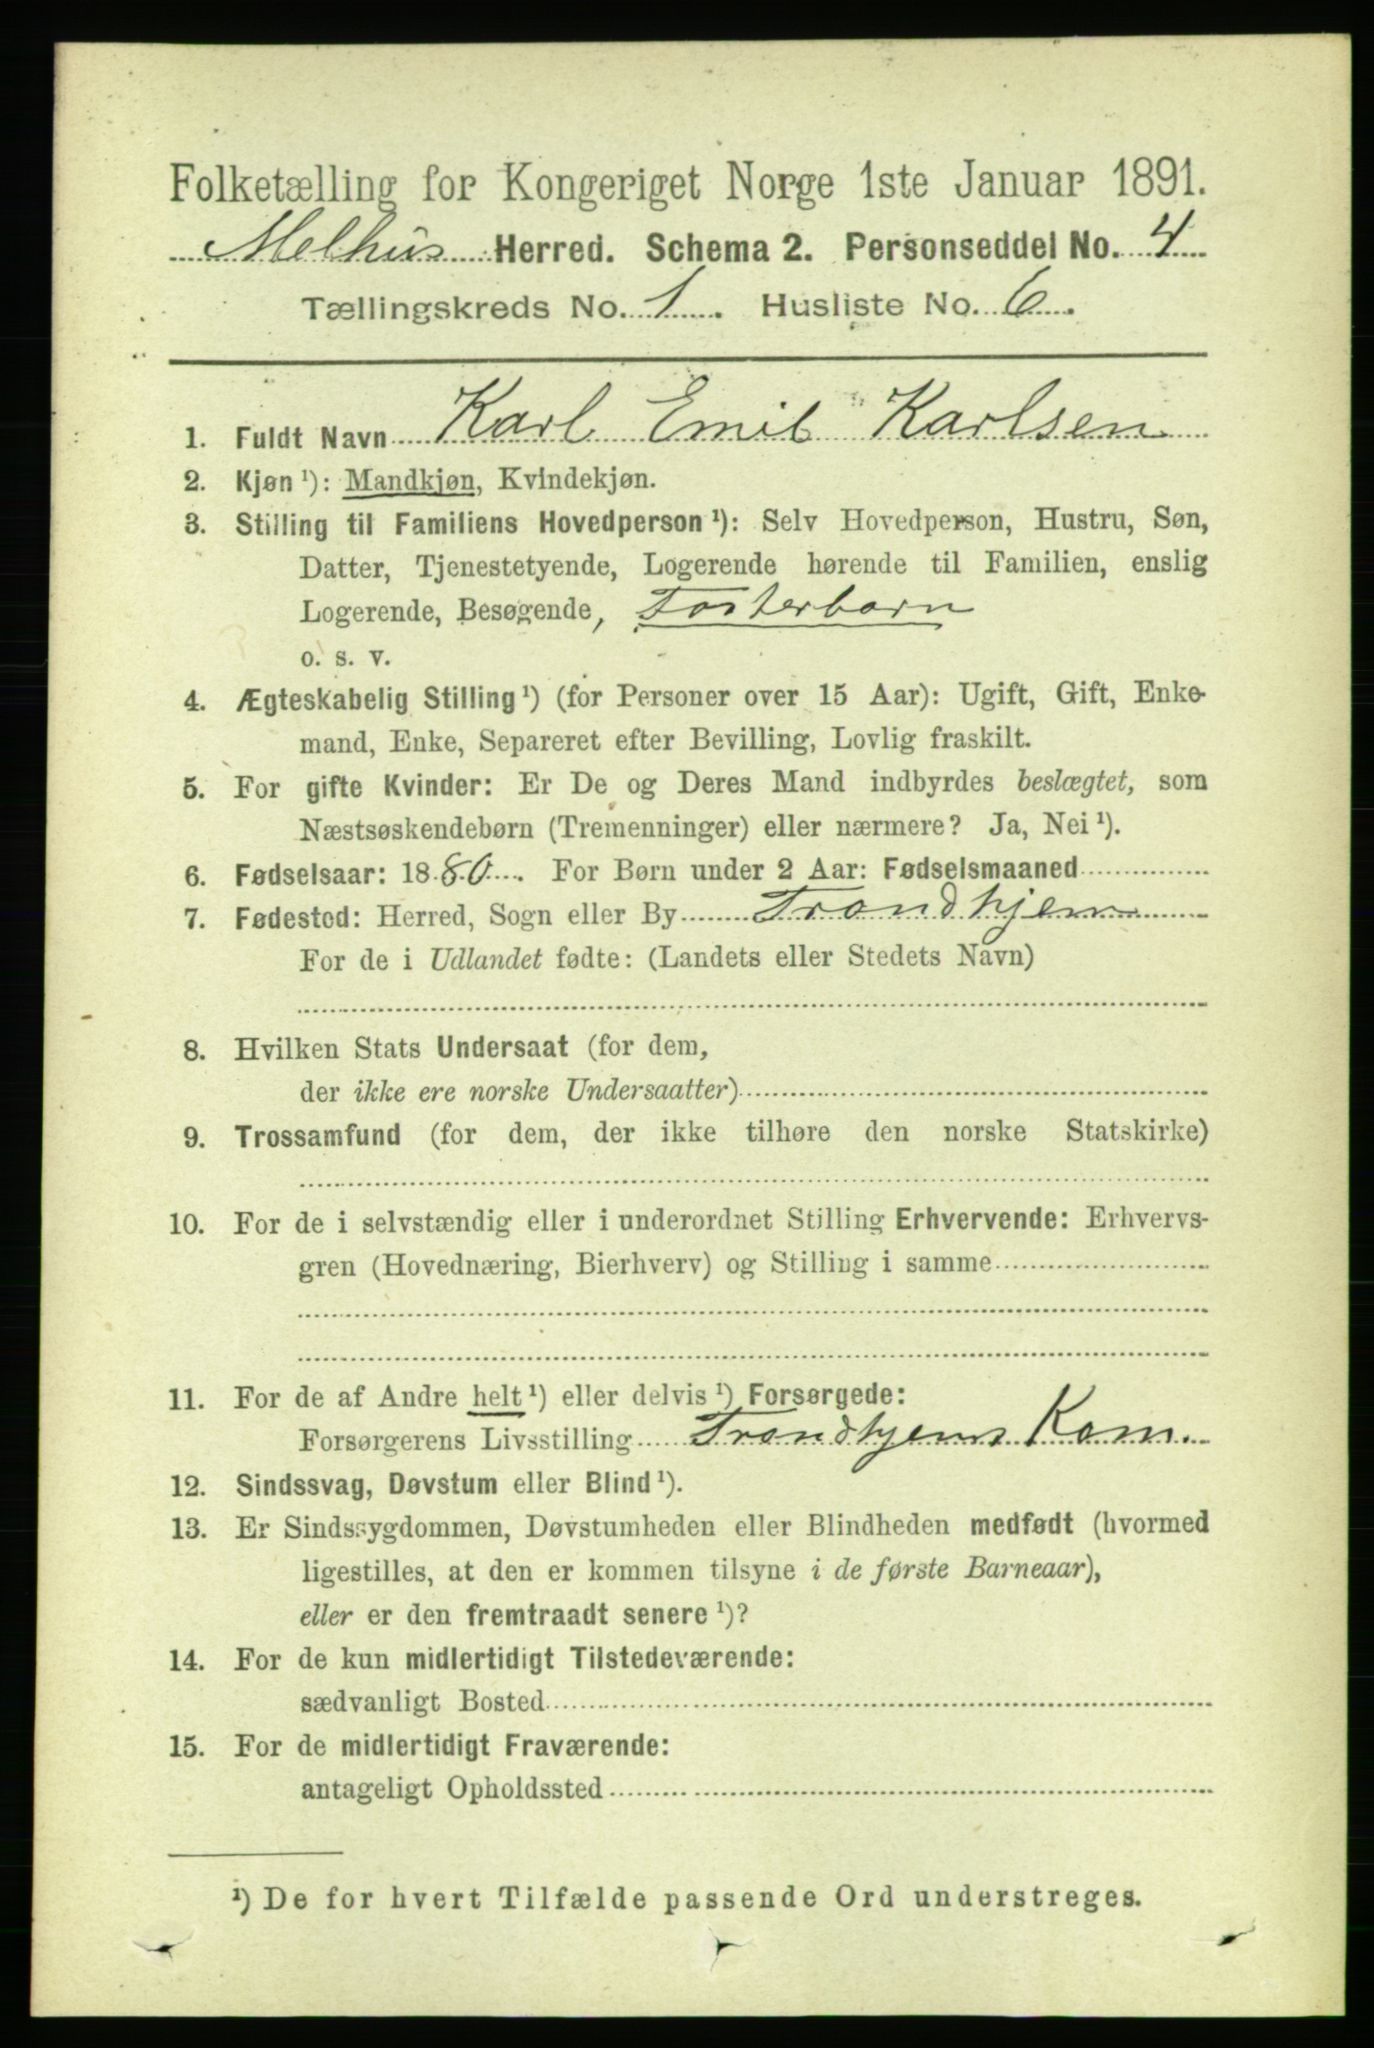 Folketælling for Kongeriget Norge 1ste Januar 1891.
Melhus Herred. Schema 2. Personseddel No. 4
Tællingskreds No. 1. Husliste No. 6.
1. Fuldt Navn Karl Emil Karlsen
2. Kjøn ¹): Mandkjøn, Kvindekjøn.
3. Stilling til Familiens Hovedperson ¹): Selv Hovedperson, Hustru, Søn,
Datter, Tjenestetyende, Logerende hørende til Familien, enslig
Logerende, Besøgende, Fosterbarn
o. s. v.
4. Ægteskabelig Stilling ¹) (for Personer over 15 Aar): Ugift, Gift, Enke-
mand, Enke, Separeret efter Bevilling, Lovlig fraskilt.
5. For gifte Kvinder: Er De og Deres Mand indbyrdes beslægtet, som
Næstsøskendebørn (Tremenninger) eller nærmere? Ja, Nei ¹).
6. Fødselsaar: 1880. For Børn under 2 Aar: Fødselsmaaned
7. Fødested: Herred, Sogn eller By Trondhjem
For de i Udlandet fødte: (Landets eller Stedets Navn)
8. Hvilken Stats Undersaat (for dem,
der ikke ere norske Undersaatter)
9. Trossamfund (for dem, der ikke tilhøre den norske Statskirke)
10. For de i selvstændig eller i underordnet Stilling Erhvervende: Erhvervs-
gren (Hovednæring, Bierhverv) og Stilling i samme
11. For de af Andre helt ¹) eller delvis ¹) Forsørgede:
Forsørgerens Livsstilling Trondhjems Kom.
12. Sindssvag, Døvstum eller Blind ¹).
13. Er Sindssygdommen, Døvstumheden eller Blindheden medfødt (hvormed
ligestilles, at den er kommen tilsyne i de første Barneaar),
eller er den fremtraadt senere ¹)?
14. For de kun midlertidigt Tilstedeværende:
sædvanligt Bosted
15. For de midlertidigt Fraværende:
antageligt Opholdssted
¹) De for hvert Tilfælde passende Ord understreges.